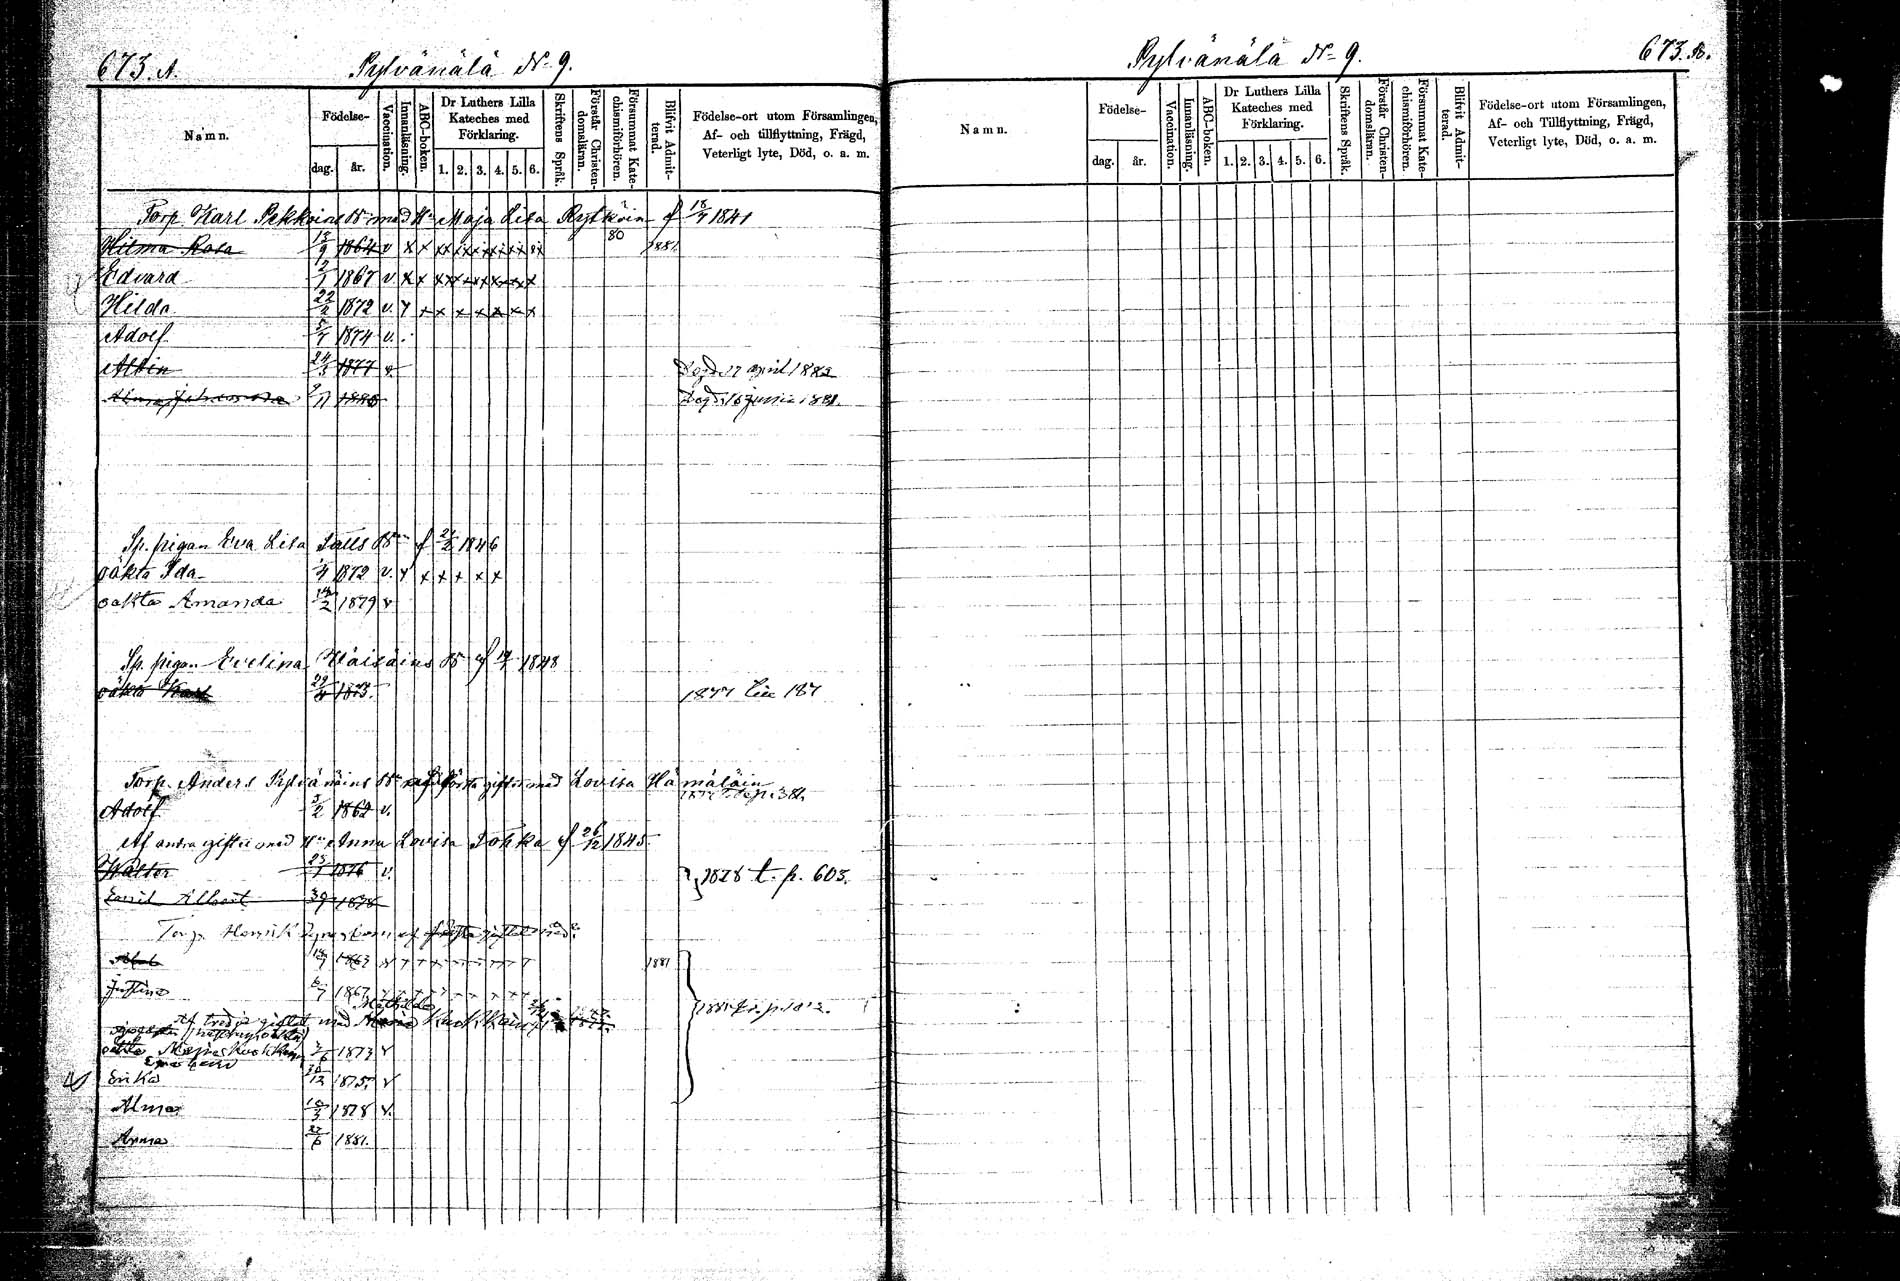 673. A.
Pylvänälä No 9.
Namn.
Födelse-
dag.
år.
Vaccination.
Innanläsning.
ABC-boken.
Dr Luthers Lilla
Kateches med
Förklaring.
1. 2. 3. 4. 5. 6.
Skriftens Språk.
Förstår Christen-
domsläran.
Försummat Kate-
chismiförhören.
Blifvit Admit-
terad.
Födelse-ort utom Församlingen,
Af- och tillflyttning, Frägd,
Veterligt lyte, Död, o. a. m.
Torp. Karl Pekkoins Bn med Hu Maja Lisa f 18/7 1841
80
Hilma Rosa 13/9 1864 v x x 1881
Edvard 2/1 1867 v. x x
Hilda 22/2 1872 v. x x x x x x x
Adolf 5/7 1874 v.
Albin 24/3 1877 v. Död 17 april 1882
1880 Död 16 junii 1881.
Sp. pigan Eva Lisa Talls Bn f 21/2 1846
oäkta Ida 1872 v. x x x x x x
oäkta Amanda 14/2 1879 v
Sp. pigan Evelina Häisäins B f 19/1 1848
oäkta Karl 29/4 1873. 1877 187
Torp. Anders Pylvänäins Bn af första giftet med Lovisa Hämäläin
Adolf 5/2 1862 v.
Af andra giftet med Hu Anna Lovisa Tohka f 26/12 1845
Walter 23/1 1876 v.
1878 t. p. 603.
Emil Albert 30/9 1878
Torp. Henrik af första giftet med
1863 1881
Justina 6/7 1867
Af tredje giftet med Mathilda Kukkain
oäkta Maria Kukkain 3/6 1873 v
Erika 30/12 1875 v
Alma 10/3 1878 v.
Anna 27/6 1881.
Pylvänälä No 9.
673. B.
Namn.
Födelse-
dag.
år.
Vaccination.
Innanläsning.
ABC-boken.
Dr Luthers Lilla
Kateches med
Förklaring.
1. 2. 3. 4. 5. 6.
Skriftens Språk.
Förstår Christen-
domsläran.
Försummat Kate-
chismiförhören.
Blifvit Admit-
terad.
Födelse-ort utom Församlingen,
Af- och Tillflyttning, Frägd,
Veterligt lyte, Död, o. a. m.